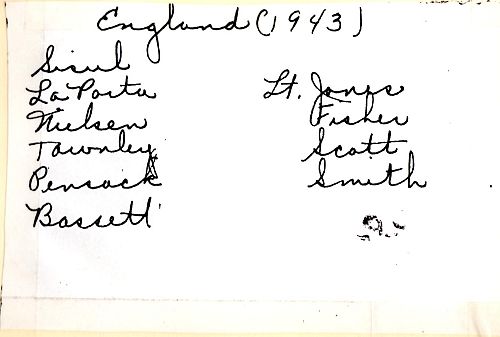 England (1943)
Sisul
La Porta
Nielsen
Townley
Pensack
Bassett
Lt. Jones
Fisher
Scott
Smith